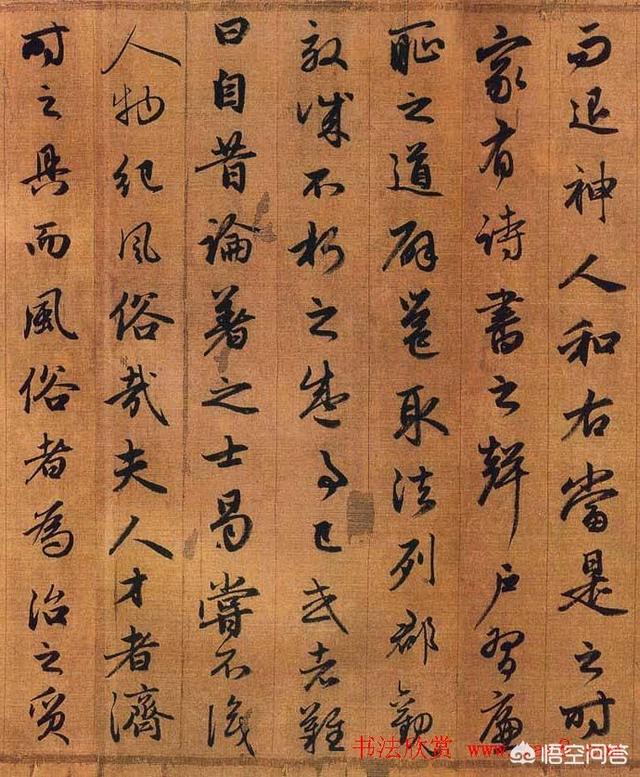 而退神人和右當是之时
家有诗書之聲户習廉
耻之道辟雍取法列郡
效誠不朽之盛事已或者難
曰自昔論著之士曷嘗不
人物紀風俗哉夫人才者濟
时之具而風俗者為治之質
书法欣赏 www.
悟空问答